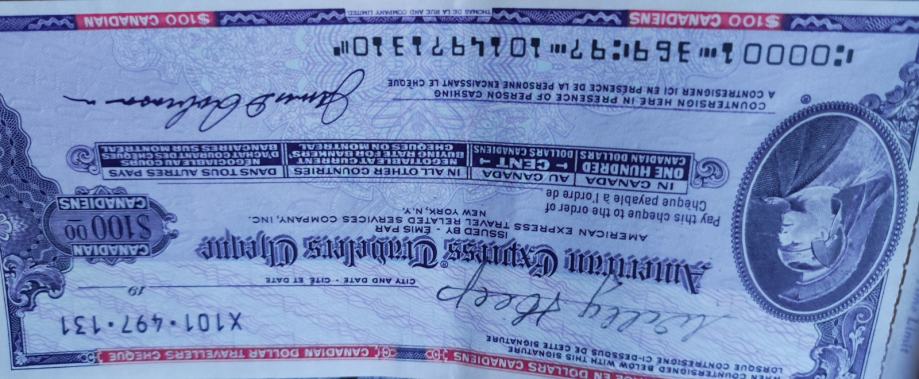 CANADIAN DOLLAR TRAVELLERS CHEQUE
EN DOLLARS CANADIENS
WHEN COUNTERSIGNED BELOW WITH THIS SIGNATURE
LORSQUE CONTRESIGNÉ CI-DESSOUS DE CETTE SIGNATURE
X101·497·131
CITY AND DATE - CITÉ ET DATE
19
American Express® Travelers Cheque
ISSUED BY - ÉMIS PAR
AMERICAN EXPRESS TRAVEL RELATED SERVICES COMPANY, INC.
NEW YORK, N.Y.
CANADIAN
$100 00
CANADIENS
Pay this cheque to the order of
Chèque payable à l'ordre de
IN CANADA
ONE HUNDRED
CANADIAN DOLLARS
AU CANADA
CENT
DOLLARS CANADIENS
IN ALL OTHER COUNTRIES
NEGOTIABLE AT CURRENT
BUYING RATE FOR BANKERS'
CHEQUES ON MONTREAL
DANS TOUS AUTRES PAYS
NÉGOCIABLE AU COURS
D'ACHAT COURANT DES CHÈQUES
BANCAIRES SUR MONTRÉAL
COUNTERSIGN HERE IN PRESENCE OF PERSON CASHING
A CONTRESIGNER ICI EN PRÉSENCE DE LA PERSONNE ENCAISSANT LE CHÈQUE
$100 CANADIENS
THOMAS DE LA RUE AND COMPANY LIMITED
$100 CANADIAN